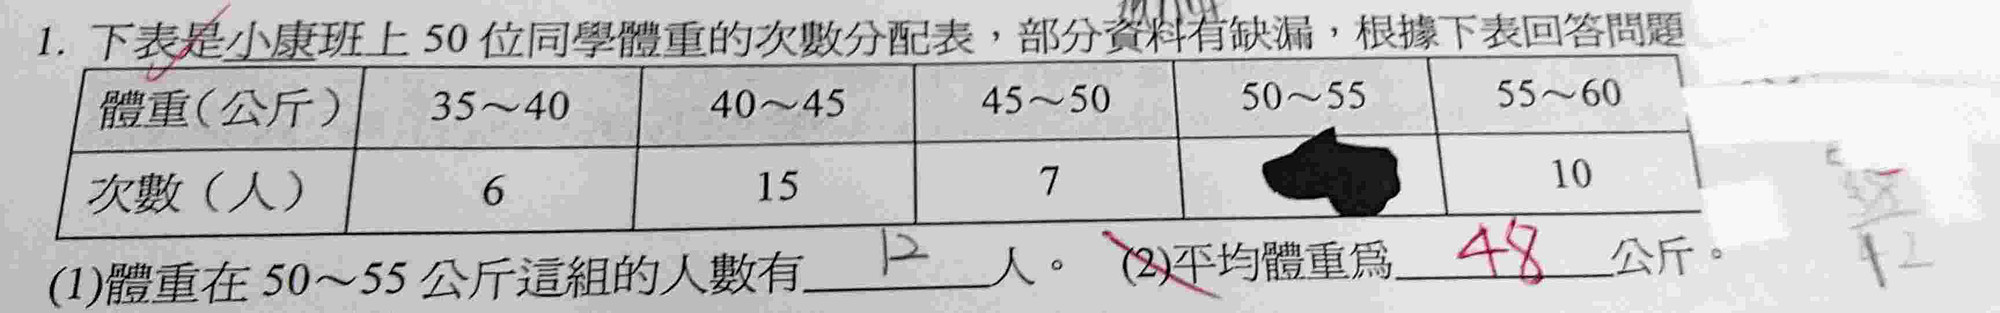 1. 下表是小康班上 50 位同學體重的次數分配表，部分資料有缺漏，根據下表回答問題
體重(公斤) 35～40 40～45 45～50 50～55 55～60
次數（人） 6 15 7 10
(1)體重在 50～55 公斤這組的人數有 12 人。 (2)平均體重爲 48 公斤。
38
12